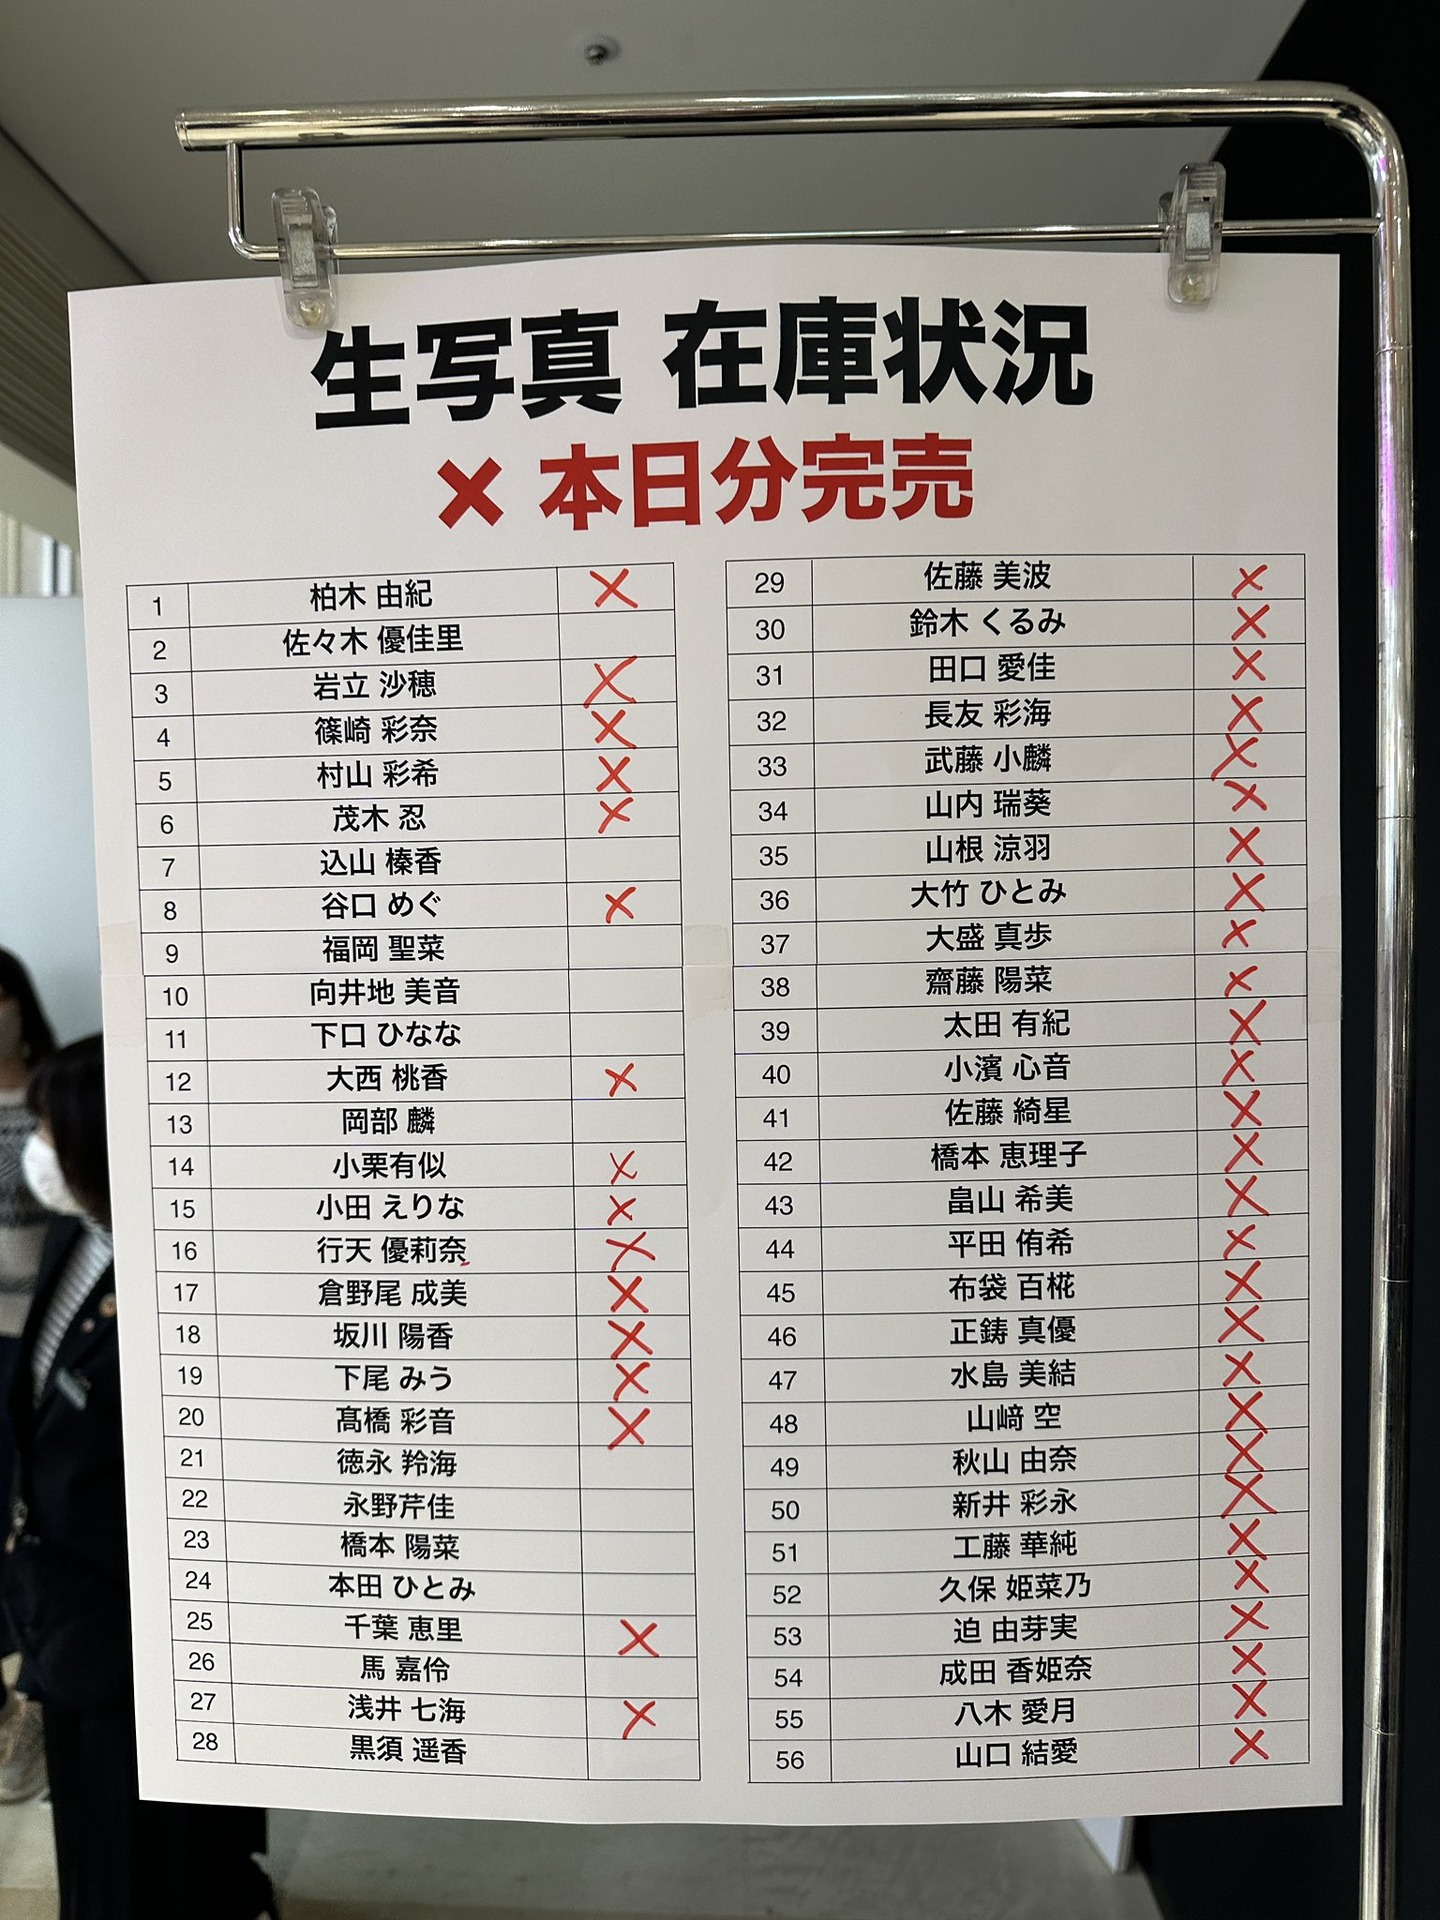 生写真 在庫状況
× 本日分完売
1 柏木 由紀 ×
2 佐々木 優佳里
3 岩立 沙穂 ×
4 篠崎 彩奈 ×
5 村山 彩希 ×
6 茂木 忍 ×
7 込山 榛香
8 谷口 めぐ ×
9 福岡 聖菜
10 向井地 美音
11 下口 ひなな
12 大西 桃香 ×
13 岡部 麟
14 小栗有以 ×
15 小田 えりな ×
16 行天 優莉奈 ×
17 倉野尾 成美 ×
18 坂川 陽香 ×
19 下尾 みう ×
20 髙橋 彩音 ×
21 徳永 羚海
22 永野芹佳
23 橋本 陽菜
24 本田 ひとみ
25 千葉 恵里 ×
26 馬 嘉伶
27 浅井 七海 ×
28 黒須 遥香
29 佐藤 美波 ×
30 鈴木 くるみ ×
31 田口 愛佳 ×
32 長友 彩海 ×
33 武藤 小麟 ×
34 山内 瑞葵 ×
35 山根 涼羽 ×
36 大竹 ひとみ ×
37 大盛 真歩 ×
38 齋藤 陽菜 ×
39 太田 有紀 ×
40 小濱 心音 ×
41 佐藤 綺星 ×
42 橋本 恵理子 ×
43 畠山 希美 ×
44 平田 侑希 ×
45 布袋 百椛 ×
46 正鋳 真優 ×
47 水島 美結 ×
48 山﨑 空 ×
49 秋山 由奈 ×
50 新井 彩永 ×
51 工藤 華純 ×
52 久保 姫菜乃 ×
53 迫 由芽実 ×
54 成田 香姫奈 ×
55 八木 愛月 ×
56 山口 結愛 ×